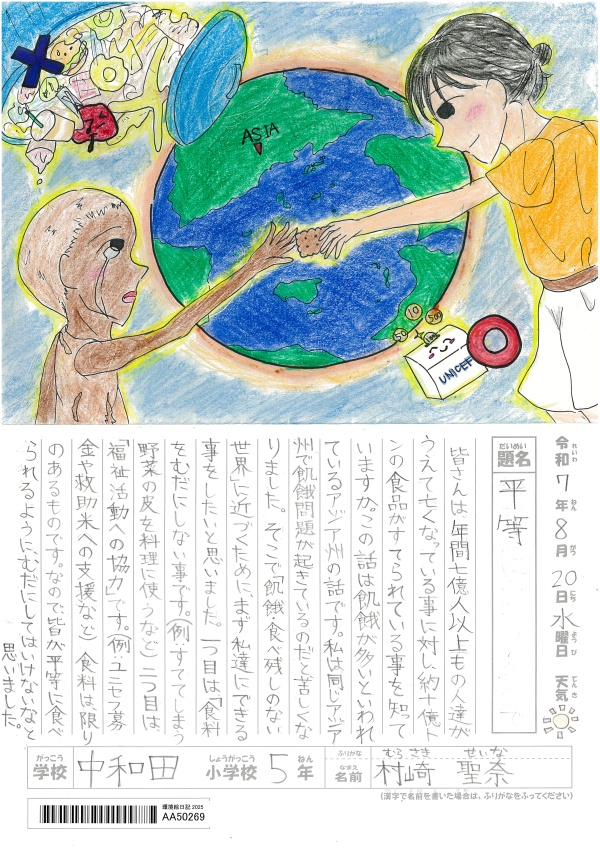 ASIA
50
10
500
100
UNICEF
令和7年8月20日水曜日 天気
れいわ ねん がつ にち ようび てんき
だいめい
題名 平等
皆さんは年間七億人以上もの人達が
うえて亡くなっている事に対し約十億ト
ンの食品がすてられている事を知って
いますか。この話は飢餓が多いといわれ
ているアジア州の話です。私は同じアジア
州で飢餓問題が起きているのだと苦しくな
りました。そこで「飢餓・食べ残しのない
世界」に近づくために、まず私達にできる
事をしたいと思いました。一つ目は「食料
をむだにしない事です。(例・すててしまう
野菜の皮を料理に使うなど)二つ目は、
「福祉活動への協力」です。(例ユニセフ募
金や救助米への支援など)食料は限り
のあるものです。なので皆が平等に食べ
られるように、むだにしてはいけないなと
思いました。
がっこう しょうがっこう ねん
学校 中和田 小学校 5年
ふりがな むらさき せいな
なまえ
名前 村崎 聖奈
(漢字で名前を書いた場合は、ふりがなをふってください)
環境絵日記 2025
AA50269